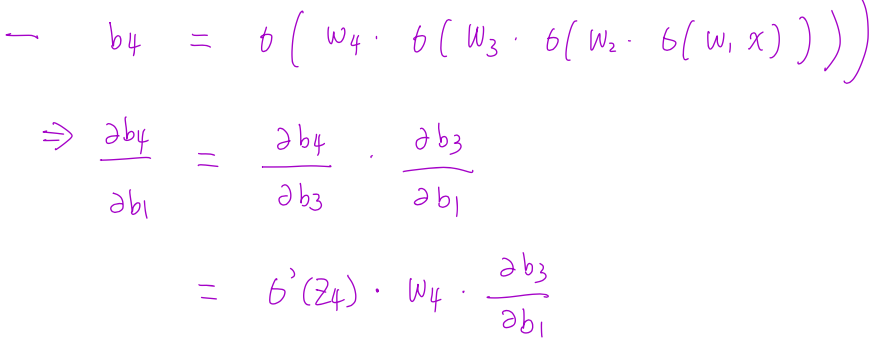 — b4 = σ( w4 · σ( w3 · σ( w2 · σ( w1 x ) ) ) )
⇒ ∂b4/∂b1 = ∂b4/∂b3 · ∂b3/∂b1
= σ'(z4) · w4 · ∂b3/∂b1